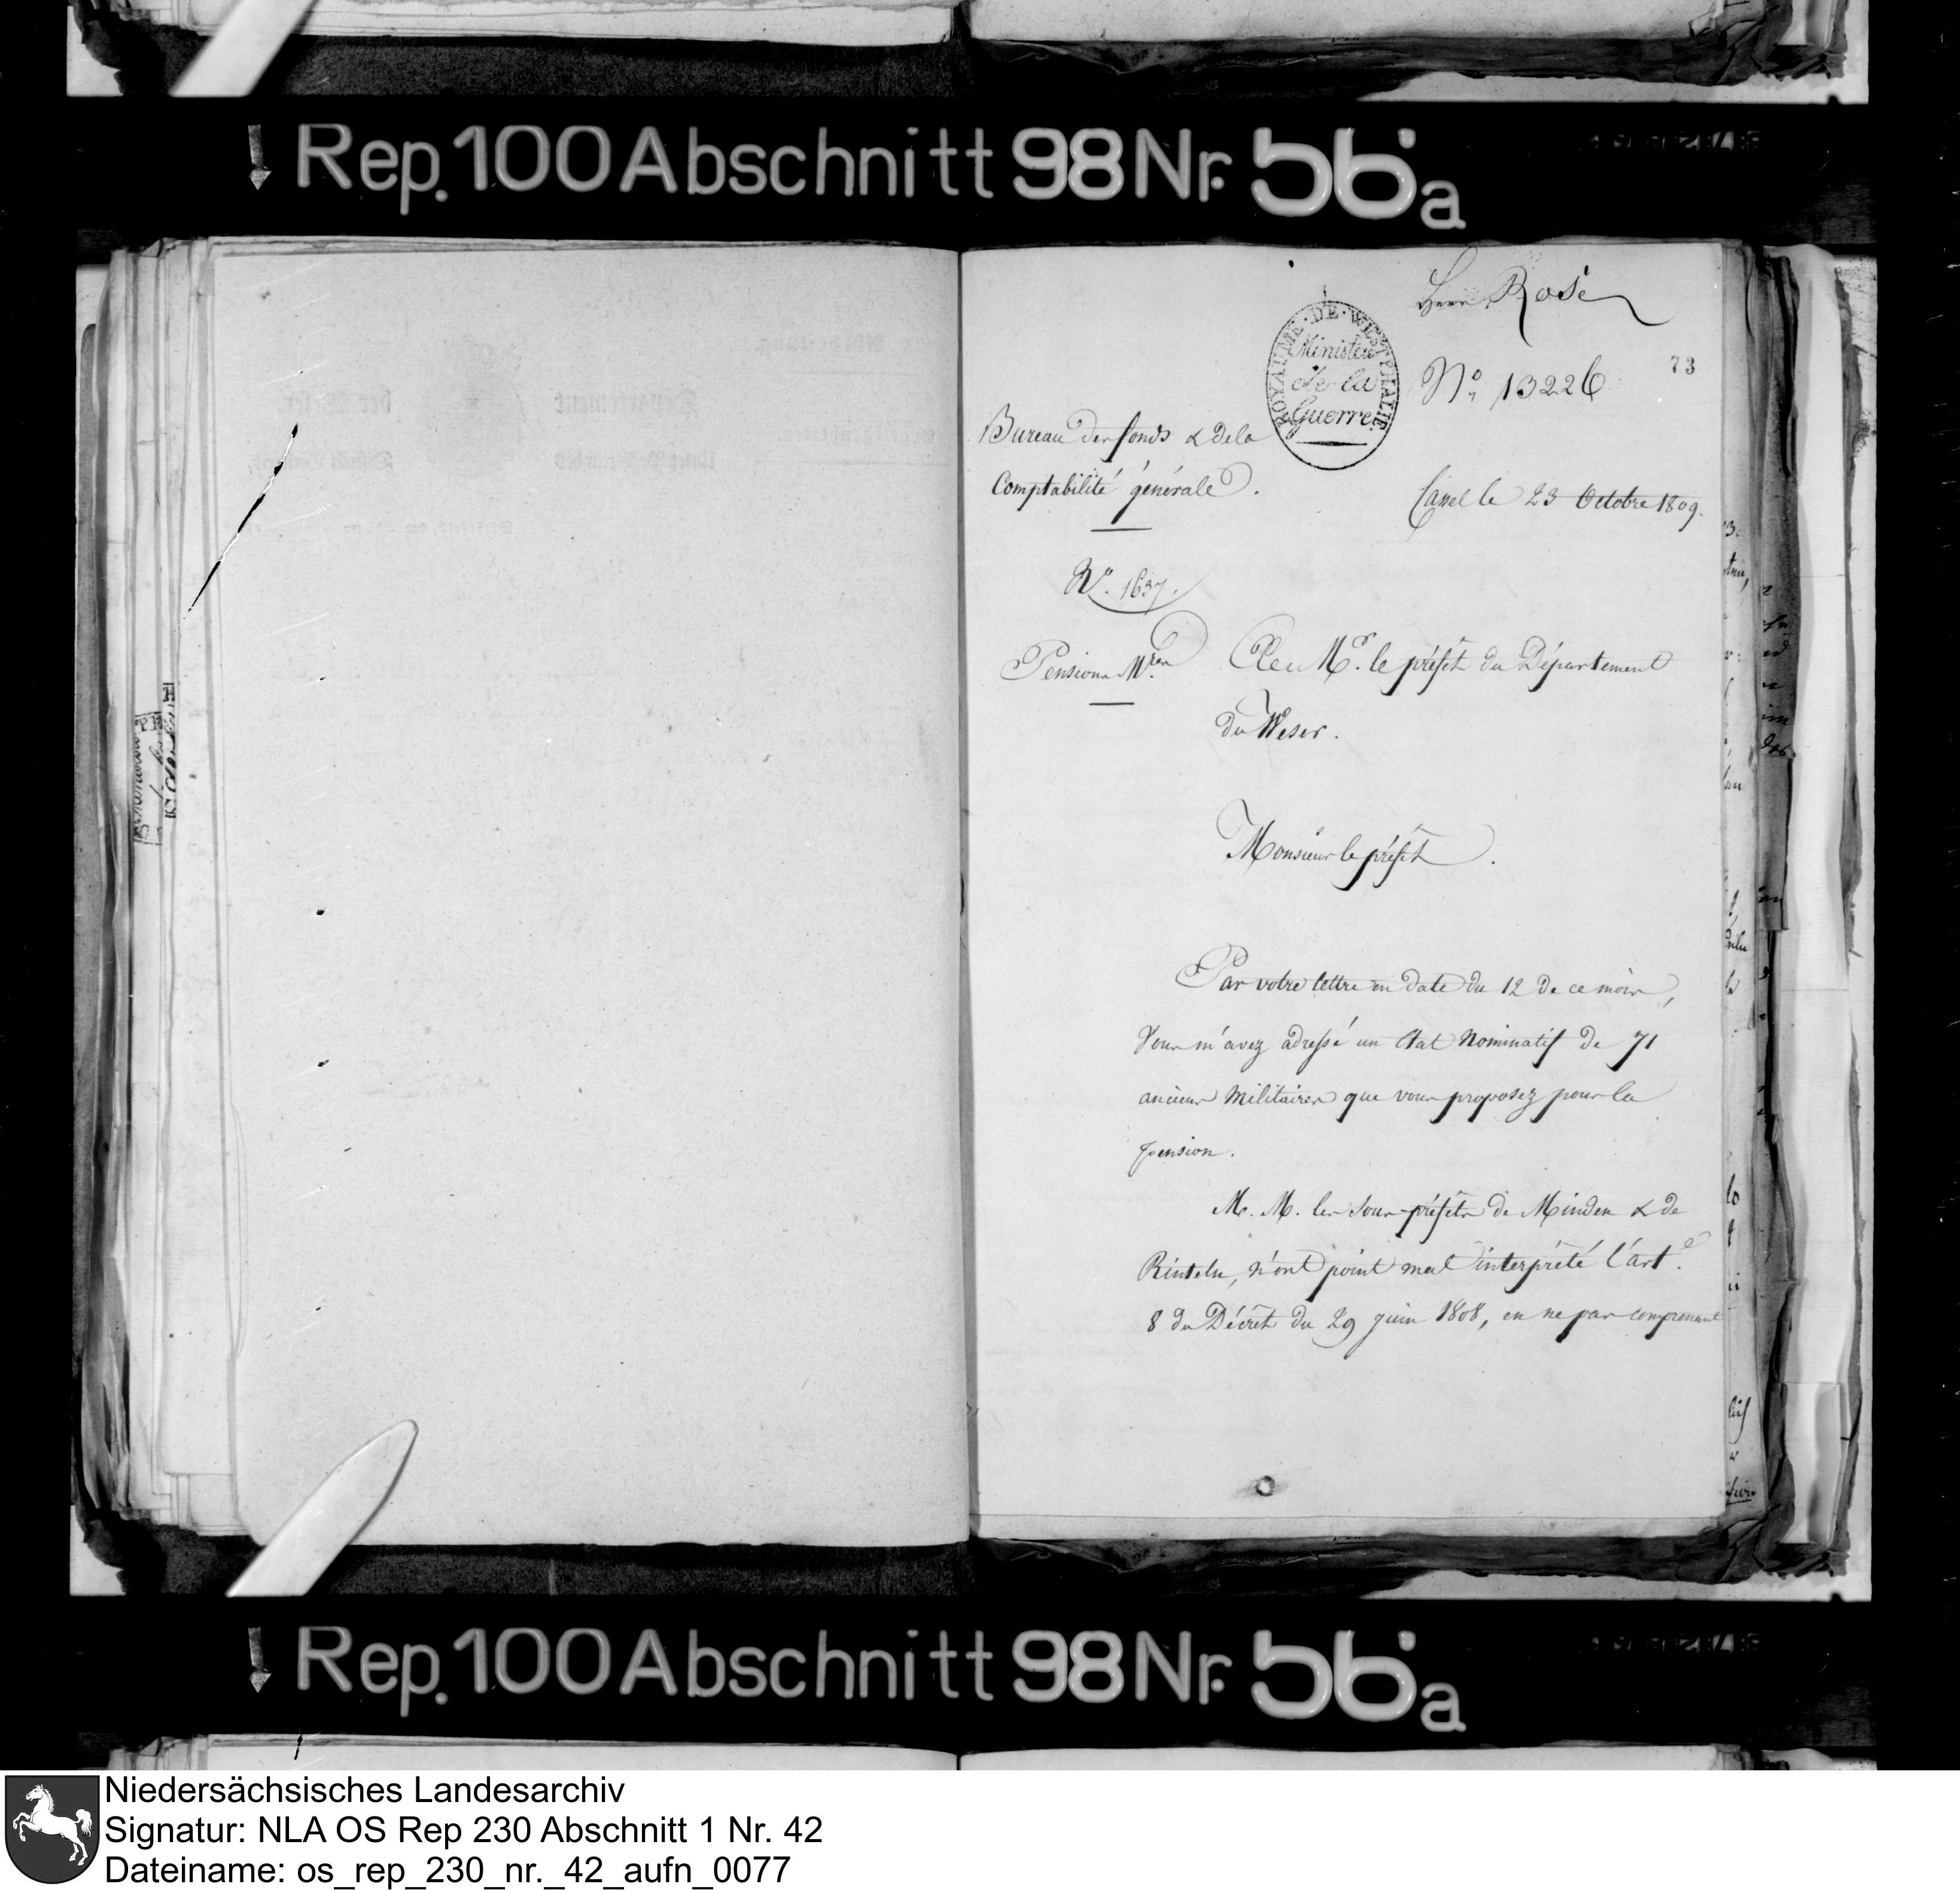 Rep. 100 Abschnitt 98 Nr. 56a
Herr Rose
ROYAUME·DE·WESTPHALIE
Ministère
de la
Guerre
No. 13226
73
Bureau des fonds & de la
Comptabilité générale.
Cassel le 23 Octobre 1809.
No. 1637.
Pensions Mres
A Mr. le préfet du Département
du Weser.
Monsieur le préfet.
Par votre lettre en date du 12 de ce mois,
Vous m'avez adressé un Etat Nominatif de 71
anciens Militaires que vous proposez pour la
pension.
M. M. les sous-préfets de Minden & de
Rinteln, n'ont point mal interprété l'arte.
8 du Décret du 29 juin 1808, en ne pas comprenant
Rep. 100 Abschnitt 98 Nr. 56a
Niedersächsisches Landesarchiv
Signatur: NLA OS Rep 230 Abschnitt 1 Nr. 42
Dateiname: os_rep_230_nr._42_aufn_0077